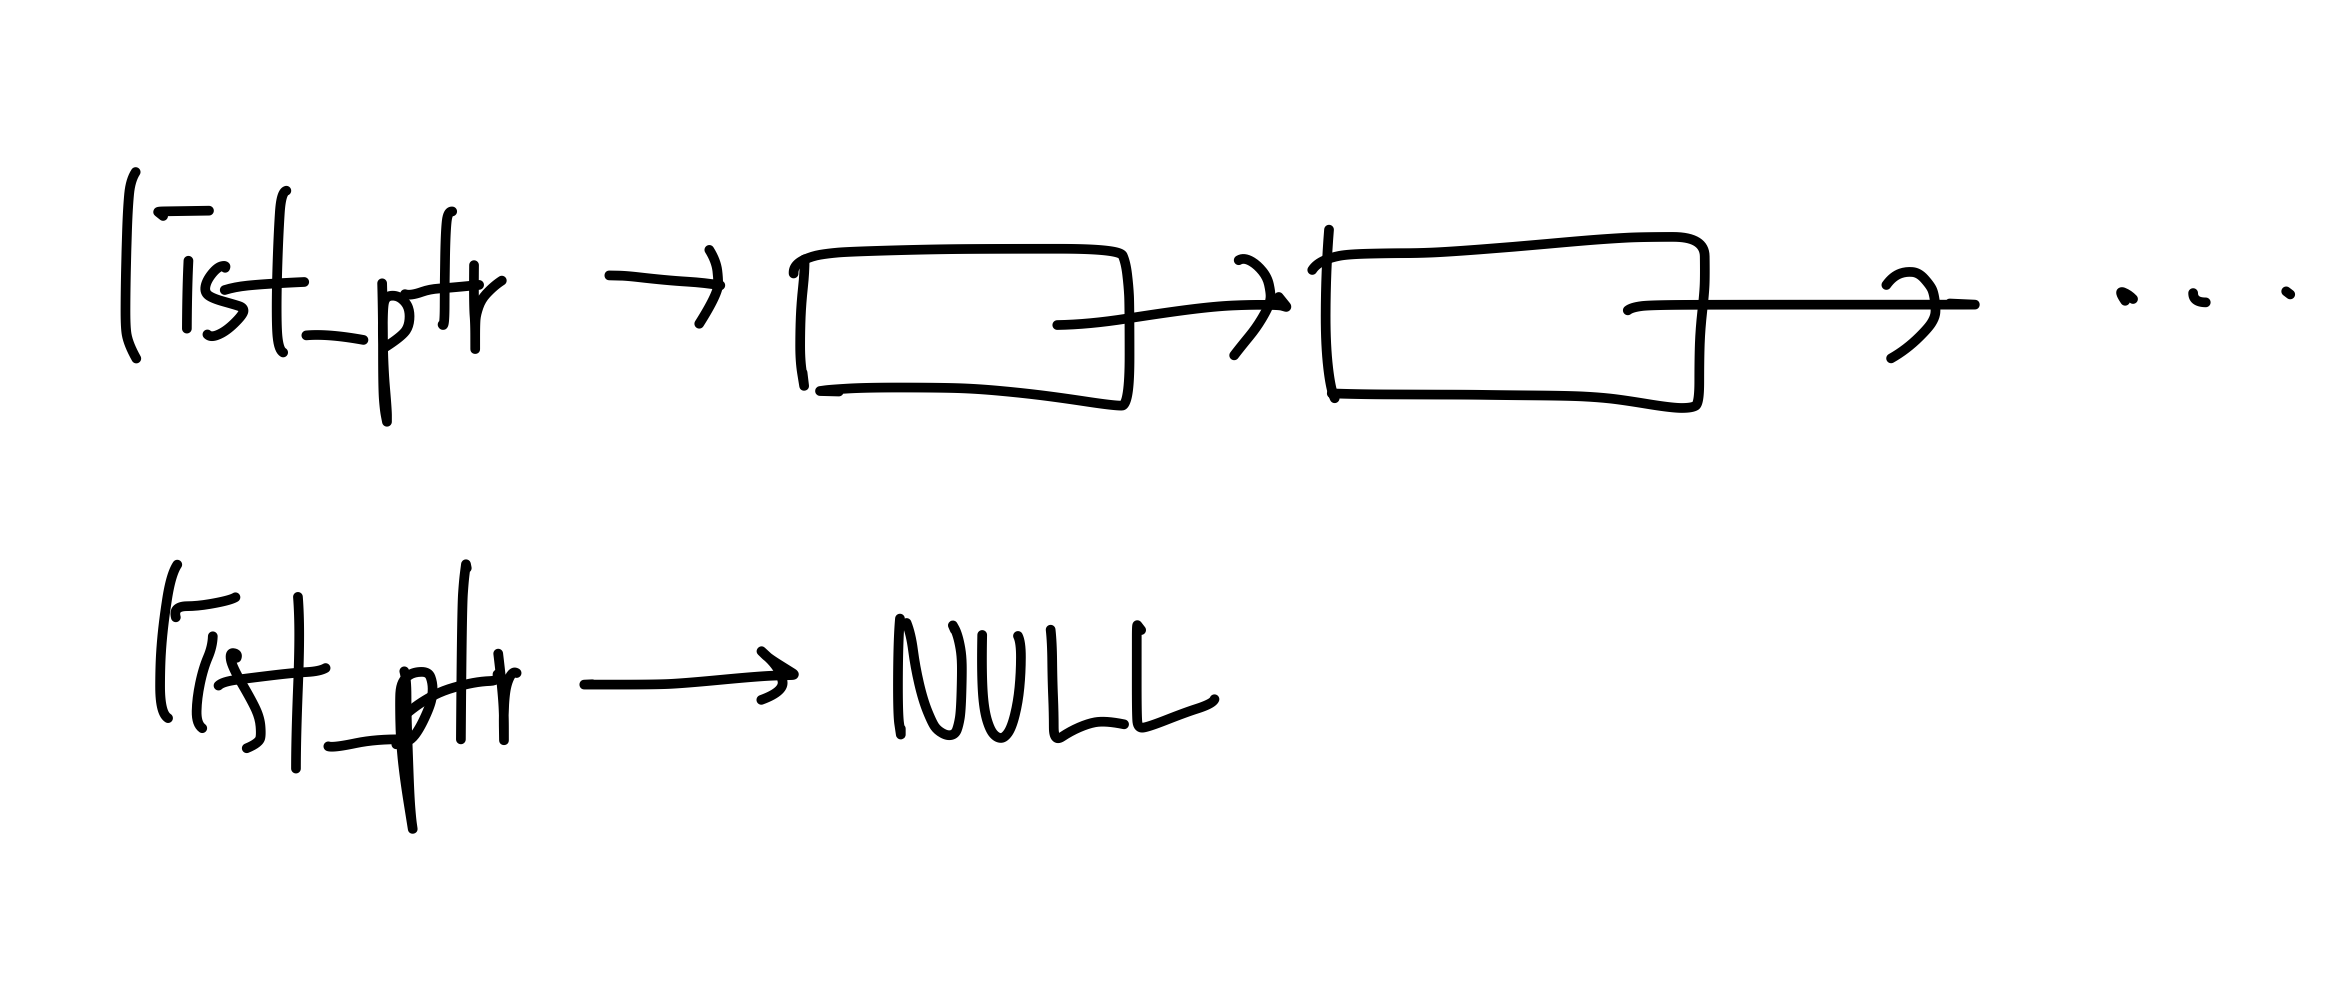 list_ptr → → → ...
list_ptr → NULL